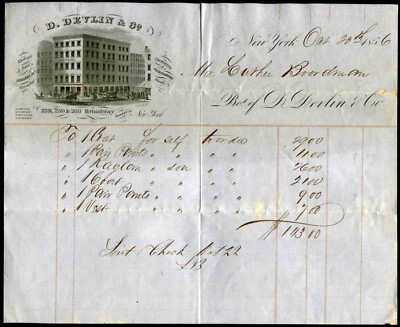 D. DEVLIN & Co.
258, 259 & 260 Broadway
New York
New York Oct 20th 1856
Mr Luther Boardman
Bot of D. Devlin & Co
To 1 Coat for self to order 29.00
" 1 Pair Pants " " " 11.00
" 1 Raglan " son " 26.00
" 1 Coat " " " 21.00
" 1 Pair Pants " " " 9.00
" 1 Vest " " " 7.00
$ 103.00
Sent Check Oct 22
LB